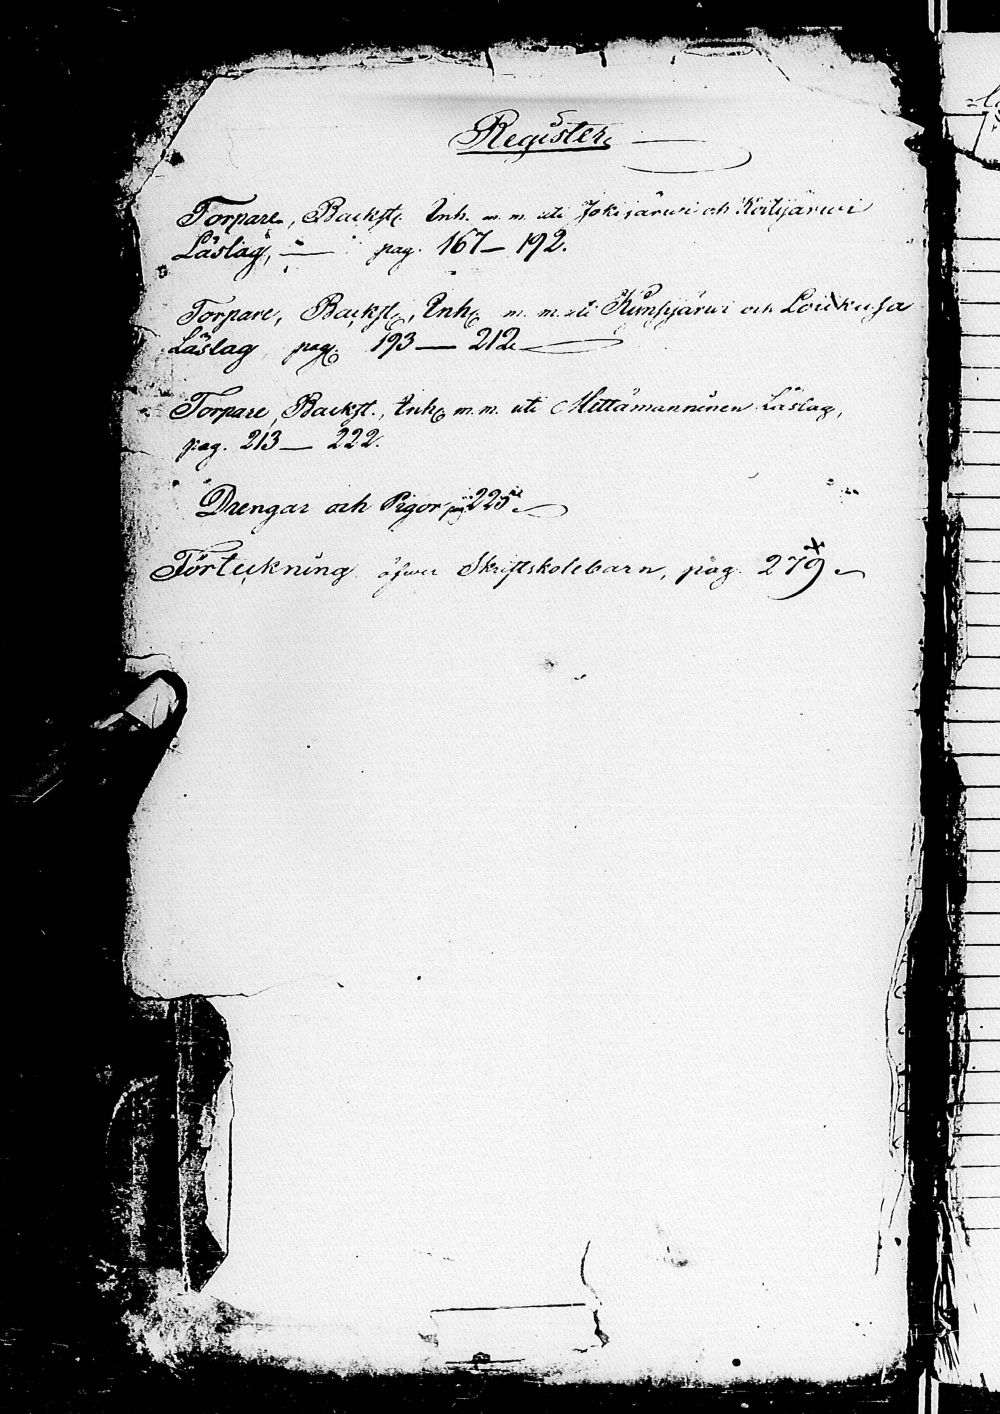 Register
Torpare, Backst. Inh. m. m. uti Jokijärwi och Koitijärwi
Läslag, — pag. 167 — 192.
Torpare, Backst., Inh. m. m. uti Kurkijärwi och Loukusa
Läslag, pag. 193 — 212
Torpare, Backst., Inh. m. m. uti Mettämanninen Läslag,
pag. 213 — 222.
Drengar och Pigor pag 225
Förteckning öfwer Skriftskolebarn, pag. 279